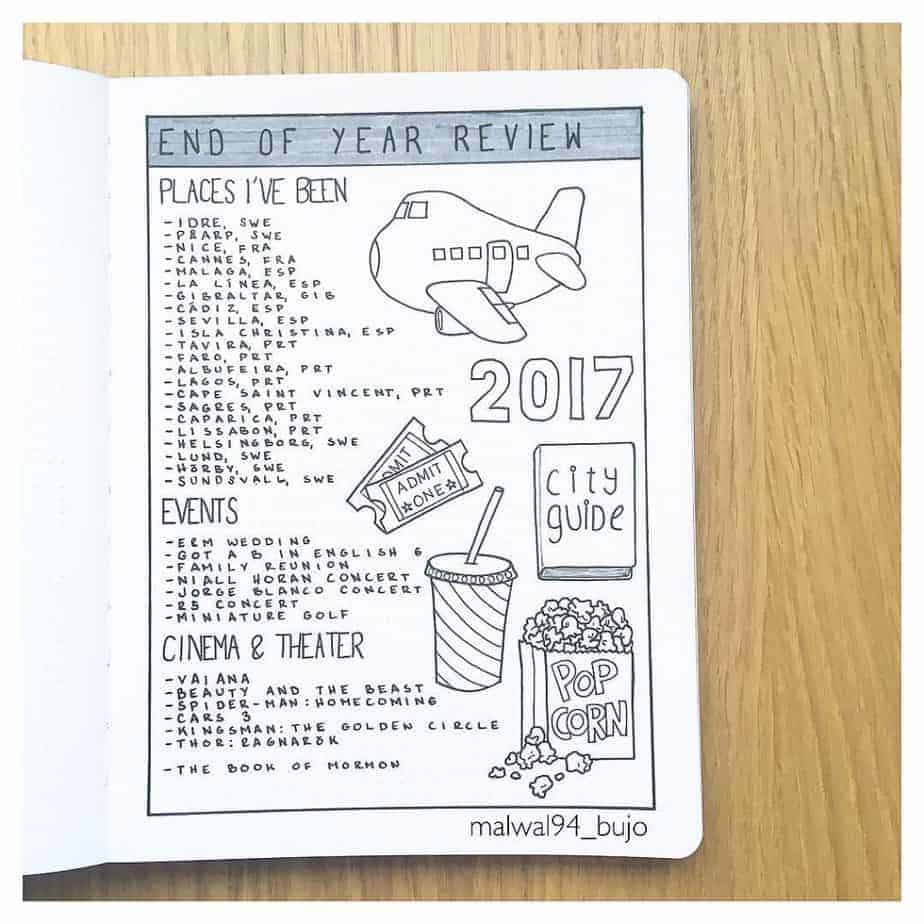 END OF YEAR REVIEW
PLACES I'VE BEEN
-IDRE, SWE
-PÅARP, SWE
-NICE, FRA
-CANNES, FRA
-MALAGA, ESP
-LA LÍNEA, ESP
-GIBRALTAR, GIB
-CÁDIZ, ESP
-SEVILLA, ESP
-ISLA CHRISTINA, ESP
-TAVIRA, PRT
-FARO, PRT
-ALBUFEIRA, PRT
-LAGOS, PRT
-CAPE SAINT VINCENT, PRT
-SAGRES, PRT
-CAPARICA, PRT
-LISSABON, PRT
-HELSINGBORG, SWE
-LUND, SWE
-HÖRBY, SWE
-SUNDSVALL, SWE
2017
ADMIT
ADMIT
ONE
city
guide
EVENTS
-E&M WEDDING
-GOT A B IN ENGLISH 6
-FAMILY REUNION
-NIALL HORAN CONCERT
-JORGE BLANCO CONCERT
-R5 CONCERT
-MINIATURE GOLF
CINEMA & THEATER
-VAIANA
-BEAUTY AND THE BEAST
-SPIDER-MAN: HOMECOMING
-CARS 3
-KINGSMAN: THE GOLDEN CIRCLE
-THOR: RAGNARÖK
-THE BOOK OF MORMON
POP
CORN
malwal94_bujo